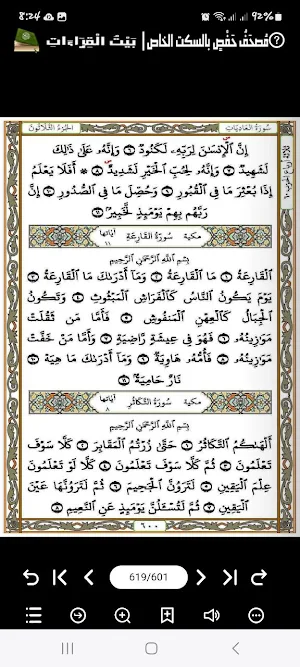 8:24
92%
مصحف حفص بالسكت الخاص | بَيْتُ الْقِرَاءَاتِ
سُورَةُ العَادِيَاتِ
الجزء الثلاثون
إِنَّ ٱلْإِنسَـٰنَ لِرَبِّهِۦ لَكَنُودٌ ٦ وَإِنَّهُۥ عَلَىٰ ذَٰلِكَ
لَشَهِيدٌ ٧ وَإِنَّهُۥ لِحُبِّ ٱلْخَيْرِ لَشَدِيدٌ ٨ ۞ أَفَلَا يَعْلَمُ
إِذَا بُعْثِرَ مَا فِى ٱلْقُبُورِ ٩ وَحُصِّلَ مَا فِى ٱلصُّدُورِ ١٠ إِنَّ
رَبَّهُم بِهِمْ يَوْمَئِذٍ لَّخَبِيرٌۢ ١١
مكية سُورَةُ القَارِعَةِ آياتها ١١
بِسْمِ ٱللَّهِ ٱلرَّحْمَـٰنِ ٱلرَّحِيمِ
ٱلْقَارِعَةُ ١ مَا ٱلْقَارِعَةُ ٢ وَمَآ أَدْرَىٰكَ مَا ٱلْقَارِعَةُ ٣
يَوْمَ يَكُونُ ٱلنَّاسُ كَٱلْفَرَاشِ ٱلْمَبْثُوثِ ٤ وَتَكُونُ
ٱلْجِبَالُ كَٱلْعِهْنِ ٱلْمَنفُوشِ ٥ فَأَمَّا مَن ثَقُلَتْ
مَوَٰزِينُهُۥ ٦ فَهُوَ فِى عِيشَةٍ رَّاضِيَةٍ ٧ وَأَمَّا مَنْ خَفَّتْ
مَوَٰزِينُهُۥ ٨ فَأُمُّهُۥ هَاوِيَةٌ ٩ وَمَآ أَدْرَىٰكَ مَا هِيَهْ ١٠
نَارٌ حَامِيَةٌۢ ١١
مكية سُورَةُ التَّكَاثُرِ آياتها ٨
بِسْمِ ٱللَّهِ ٱلرَّحْمَـٰنِ ٱلرَّحِيمِ
أَلْهَىٰكُمُ ٱلتَّكَاثُرُ ١ حَتَّىٰ زُرْتُمُ ٱلْمَقَابِرَ ٢ كَلَّا سَوْفَ
تَعْلَمُونَ ٣ ثُمَّ كَلَّا سَوْفَ تَعْلَمُونَ ٤ كَلَّا لَوْ تَعْلَمُونَ
عِلْمَ ٱلْيَقِينِ ٥ لَتَرَوُنَّ ٱلْجَحِيمَ ٦ ثُمَّ لَتَرَوُنَّهَا عَيْنَ
ٱلْيَقِينِ ٧ ثُمَّ لَتُسْـَٔلُنَّ يَوْمَئِذٍ عَنِ ٱلنَّعِيمِ ٨
٦٠٠
619/601